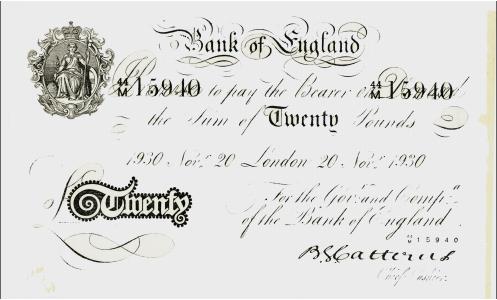 Bank of England
44/M 15940 to pay the Bearer on 44/M 15940
the Sum of Twenty Pounds
1930 Novr. 20 London 20 Novr. 1930
For the Govr. and Compa.
of the Bank of England
£Twenty
44/M 15940
B G Catterns
Chief Cashier